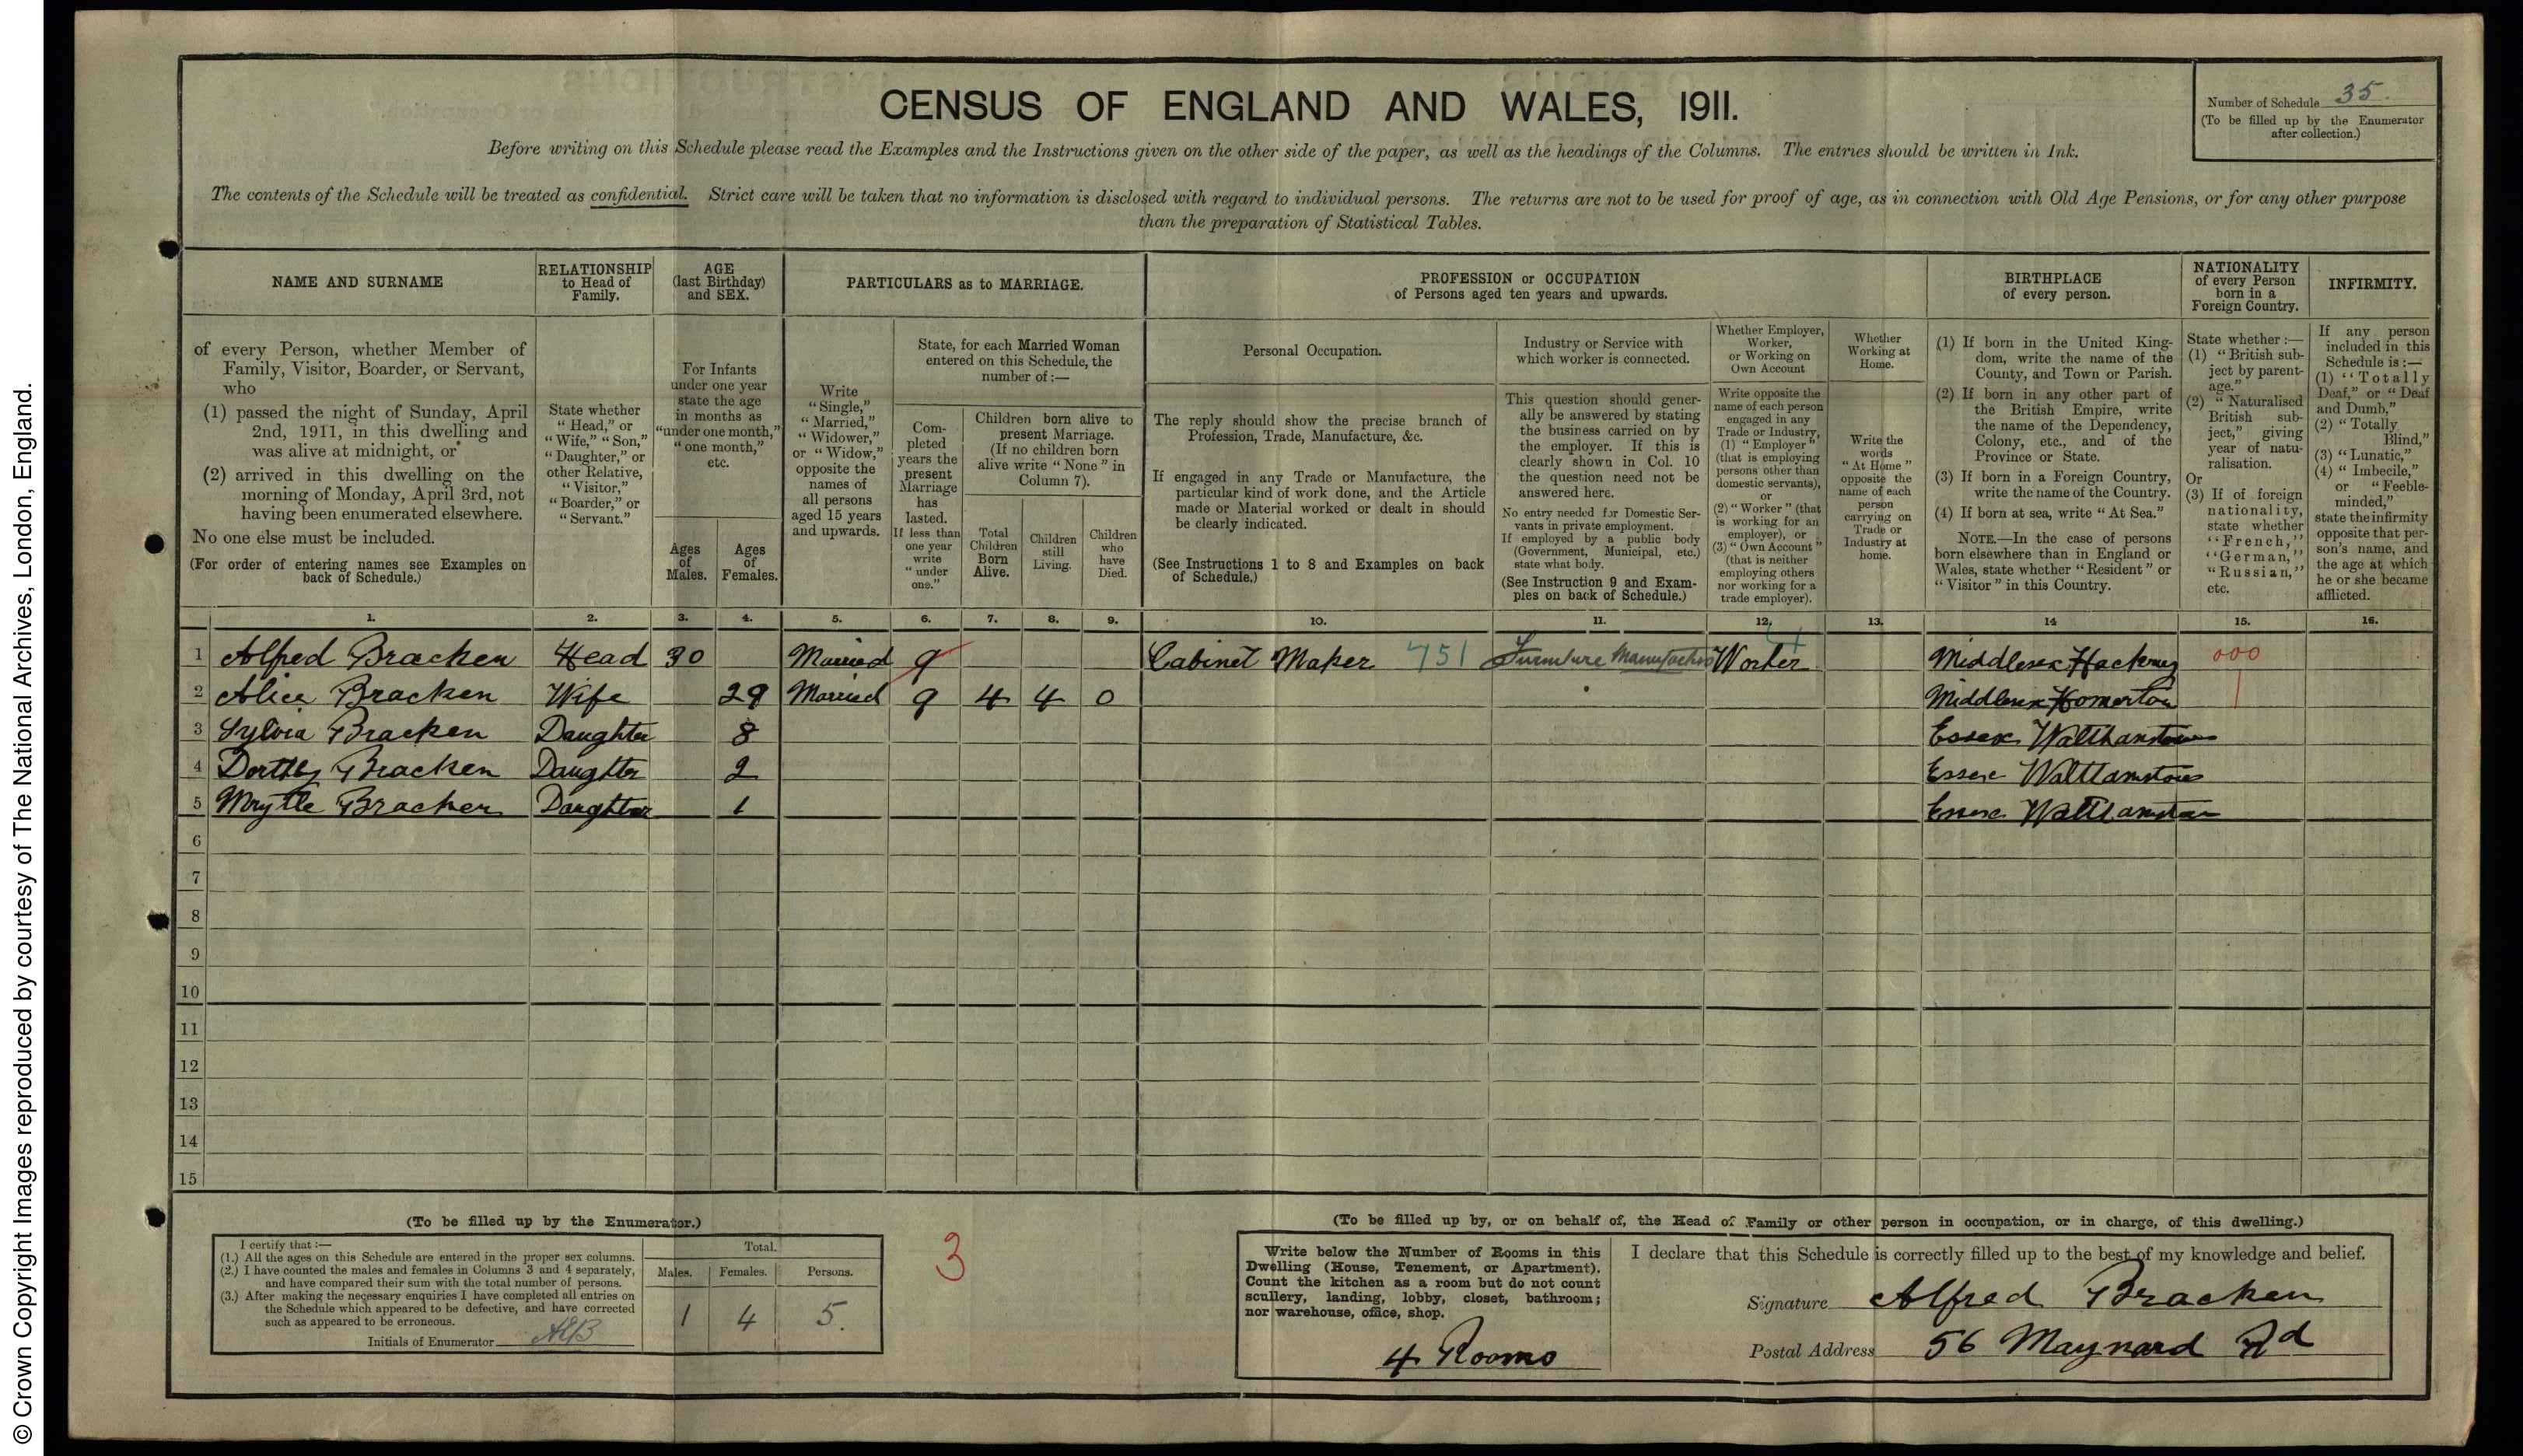 © Crown Copyright Images reproduced by courtesy of The National Archives, London, England.
CENSUS OF ENGLAND AND WALES, 1911.
Number of Schedule 35.
(To be filled up by the Enumerator
after collection.)
Before writing on this Schedule please read the Examples and the Instructions given on the other side of the paper, as well as the headings of the Columns. The entries should be written in Ink.
The contents of the Schedule will be treated as confidential. Strict care will be taken that no information is disclosed with regard to individual persons. The returns are not to be used for proof of age, as in connection with Old Age Pensions, or for any other purpose
than the preparation of Statistical Tables.
NAME AND SURNAME
of every Person, whether Member of
Family, Visitor, Boarder, or Servant,
who
(1) passed the night of Sunday, April
2nd, 1911, in this dwelling and
was alive at midnight, or
(2) arrived in this dwelling on the
morning of Monday, April 3rd, not
having been enumerated elsewhere.
No one else must be included.
(For order of entering names see Examples on
back of Schedule.)
RELATIONSHIP
to Head of
Family.
State whether
"Head," or
"Wife," "Son,"
"Daughter," or
other Relative,
"Visitor,"
"Boarder," or
"Servant."
AGE
(last Birthday)
and SEX.
For Infants
under one year
state the age
in months as
"under one month,"
"one month,"
etc.
Ages
of
Males.
Ages
of
Females.
PARTICULARS as to MARRIAGE.
Write
"Single,"
"Married,"
"Widower,"
or "Widow,"
opposite the
names of
all persons
aged 15 years
and upwards.
State, for each Married Woman
entered on this Schedule, the
number of :—
Com-
pleted
years the
present
Marriage
has
lasted.
If less than
one year
write
"under
one."
Children born alive to
present Marriage.
(If no children born
alive write "None" in
Column 7).
Total
Children
Born
Alive.
Children
still
Living.
Children
who
have
Died.
PROFESSION or OCCUPATION
of Persons aged ten years and upwards.
Personal Occupation.
The reply should show the precise branch of
Profession, Trade, Manufacture, &c.
If engaged in any Trade or Manufacture, the
particular kind of work done, and the Article
made or Material worked or dealt in should
be clearly indicated.
(See Instructions 1 to 8 and Examples on back
of Schedule.)
Industry or Service with
which worker is connected.
This question should gener-
ally be answered by stating
the business carried on by
the employer. If this is
clearly shown in Col. 10
the question need not be
answered here.
No entry needed for Domestic Ser-
vants in private employment.
If employed by a public body
(Government, Municipal, etc.)
state what body.
(See Instruction 9 and Exam-
ples on back of Schedule.)
Whether Employer,
Worker,
or Working on
Own Account
Write opposite the
name of each person
engaged in any
Trade or Industry,
(1) "Employer"
(that is employing
persons other than
domestic servants),
or
(2) "Worker" (that
is working for an
employer), or
(3) "Own Account"
(that is neither
employing others
nor working for a
trade employer).
Whether
Working at
Home.
Write the
words
"At Home"
opposite the
name of each
person
carrying on
Trade or
Industry at
home.
BIRTHPLACE
of every person.
(1) If born in the United King-
dom, write the name of the
County, and Town or Parish.
(2) If born in any other part of
the British Empire, write
the name of the Dependency,
Colony, etc., and of the
Province or State.
(3) If born in a Foreign Country,
write the name of the Country.
(4) If born at sea, write "At Sea."
NOTE.—In the case of persons
born elsewhere than in England or
Wales, state whether "Resident" or
"Visitor" in this Country.
NATIONALITY
of every Person
born in a
Foreign Country.
State whether :—
(1) "British sub-
ject by parent-
age."
(2) "Naturalised
British sub-
ject," giving
year of natu-
ralisation.
Or
(3) If of foreign
nationality,
state whether
"French,"
"German,"
"Russian,"
etc.
INFIRMITY.
If any person
included in this
Schedule is :—
(1) "Totally
Deaf," or "Deaf
and Dumb,"
(2) "Totally
Blind,"
(3) "Lunatic,"
(4) "Imbecile,"
or "Feeble-
minded,"
state the infirmity
opposite that per-
son's name, and
the age at which
he or she became
afflicted.
1. 2. 3. 4. 5. 6. 7. 8. 9. 10. 11. 12. 13. 14 15. 16.
1 Alfred Bracken Head 30 Married 9 Cabinet Maker 751 Furniture Worker Middlesex Hackney 000
2 Alice Bracken Wife 29 Married 9 4 4 0 Middlesex Homerton 1
3 Sylvia Bracken Daughter 8 Essex Walthamstow
4 Dorthy Bracken Daughter 2 Essex Walthamstow
5 Mrytle Bracken Daughter 1 Essex Walthamstow
6
7
8
9
10
11
12
13
14
15
(To be filled up by the Enumerator.)
I certify that :—
(1.) All the ages on this Schedule are entered in the proper sex columns.
(2.) I have counted the males and females in Columns 3 and 4 separately,
and have compared their sum with the total number of persons.
(3.) After making the necessary enquiries I have completed all entries on
the Schedule which appeared to be defective, and have corrected
such as appeared to be erroneous.
Initials of Enumerator
Total.
Males. Females. Persons.
1 4 5.
3
(To be filled up by, or on behalf of, the Head of Family or other person in occupation, or in charge, of this dwelling.)
Write below the Number of Rooms in this
Dwelling (House, Tenement, or Apartment).
Count the kitchen as a room but do not count
scullery, landing, lobby, closet, bathroom;
nor warehouse, office, shop.
4 Rooms
I declare that this Schedule is correctly filled up to the best of my knowledge and belief.
Signature Alfred Bracken
Postal Address 56 Maynard Rd